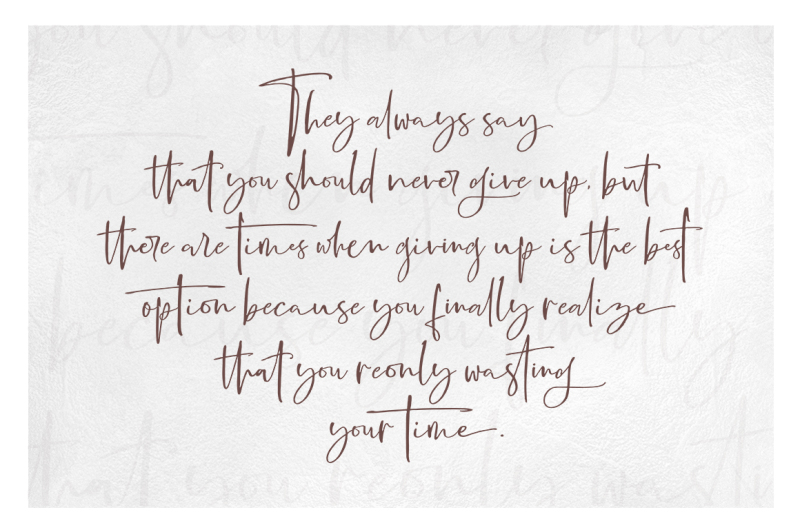 They always say
that you should never give up, but
there are times when giving up is the best
option because you finally realize
that you reonly wasting
your time.